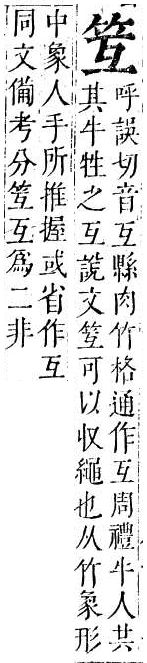 笠呼誤切音互縣肉竹格通作互周禮牛人共
其牛牲之互說文笠可以収繩也从竹象形
中象人手所推握或省作互
同文備考分笠互爲二非